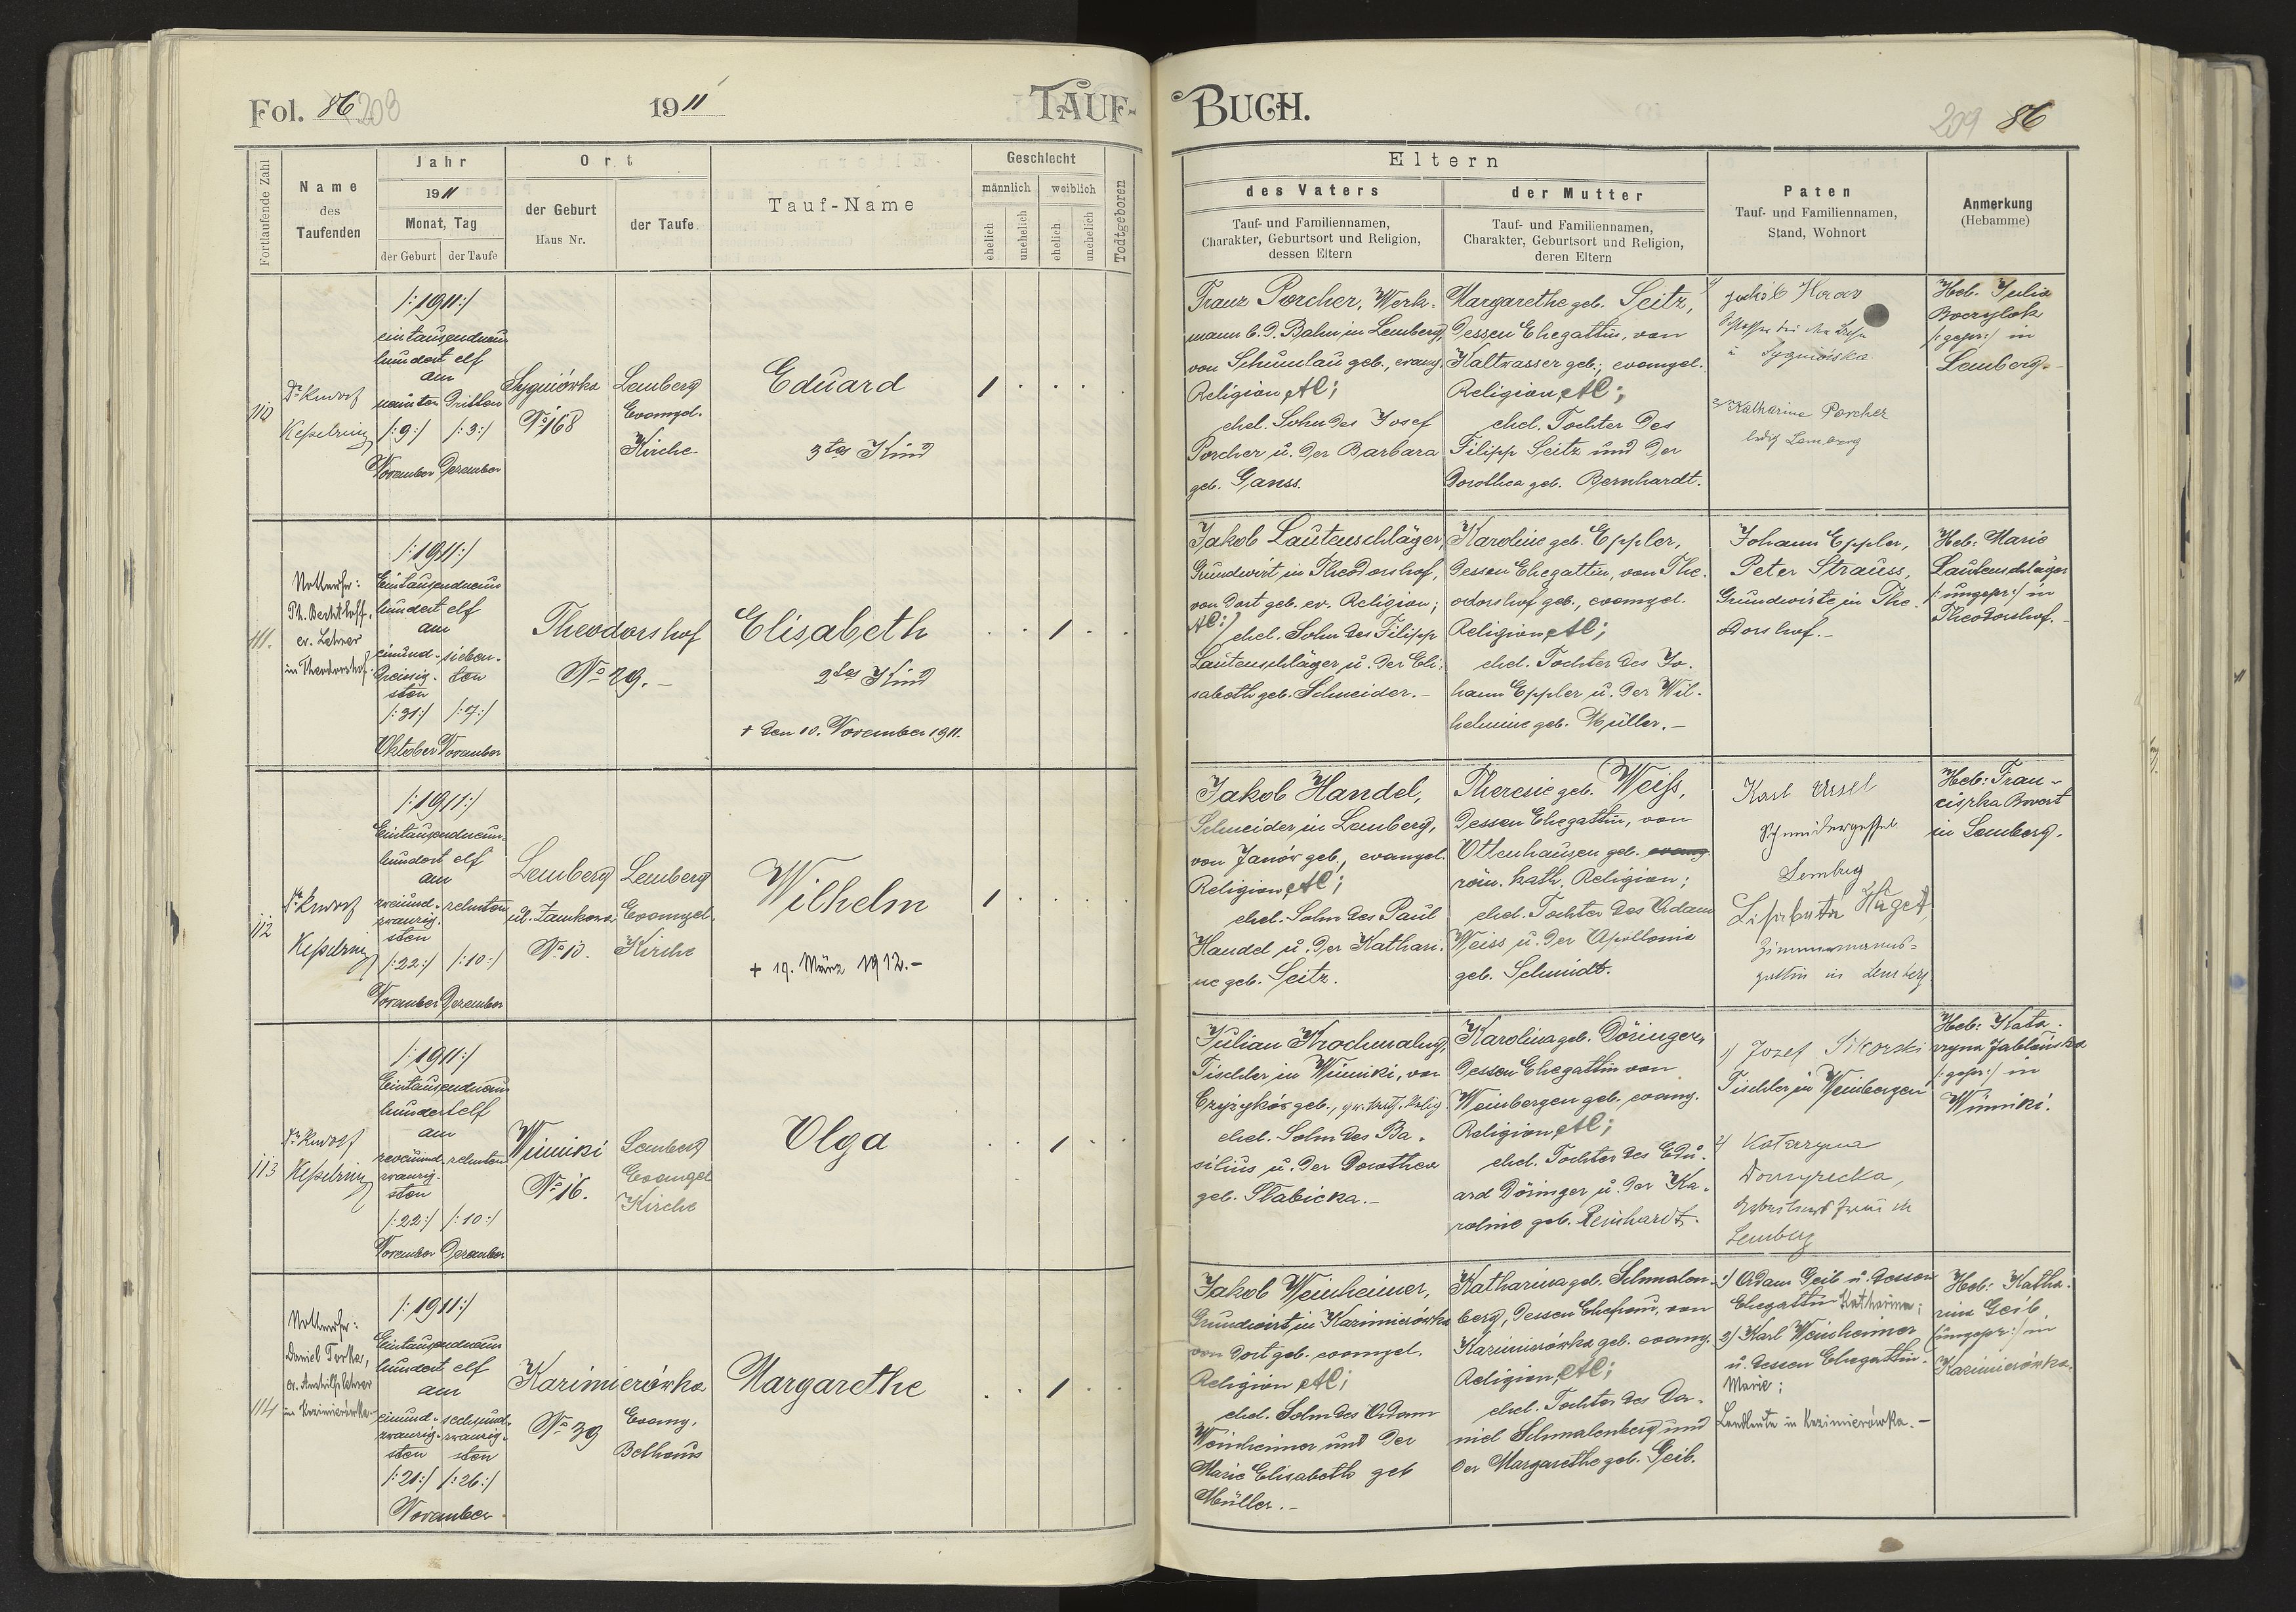 Fol. 86 208
1911
TAUF-
Fortlaufende Zahl
Name
des
Taufenden
Jahr
1911
Monat, Tag
der Geburt der Taufe
Ort
der Geburt
Haus Nr.
der Taufe
Tauf-Name
Geschlecht
männlich weiblich
ehelich unehelich ehelich unehelich
Todtgeboren
110
Dr. Rudolf
Kesselring
/:1911:/
eintausendneun
hundert elf
am
neunten dritten
/:9:/ /:3:/
November Dezember
Sygniówka
No 168
Lemberg
Evangel.
Kirche
Eduard
3tes Kind
1
111.
Nottaufer:
Ph. Bechtloff,
ev. Lehrer
in Theodorshof.
/:1911:/
Eintausendneun
hundert elf
am
einund- sieben-
dreissig- ten
sten
/:31:/ /:7:/
Oktober November
Theodorshof
No 29.-
Elisabeth
2tes Kind
+ den 10. November 1911.
1
112
Dr. Rudolf
Kesselring
/:1911:/
Eintausendneun-
hundert elf
am
zweiund- zehnten
zwanzig-
sten
/:22:/ /:10:/
November Dezember
Lemberg
ul. Zamkowa
No 10.
Lemberg
Evangel.
Kirche
Wilhelm
+ 19. März 1912.-
1
113
Dr. Rudolf
Kesselring
/:1911:/
Eintausendneun
hundert elf
am
zweiund- zehnten
zwanzig-
sten
/:22:/ /:10:/
November Dezember
Winniki
No 16.
Lemberg
Evangel
Kirche
Olga
1
114
Nottaufer:
Daniel Torka,
ev. Aushilfslehrer
in Kazimierówka.
/:1911:/
Eintausendneun
hundert elf
am
einund- sechsund-
zwanzig- zwanzig-
sten sten
/:21:/ /:26:/
November
Kazimierówka
No 39
Evang.
Bethaus
Margarethe
1
BUCH.
209 86
Eltern
des Vaters
Tauf- und Familiennamen,
Charakter, Geburtsort und Religion,
dessen Eltern
der Mutter
Tauf- und Familiennamen,
Charakter, Geburtsort und Religion,
deren Eltern
Paten
Tauf- und Familiennamen,
Stand, Wohnort
Anmerkung
(Hebamme)
Franz Porcher, Werk-
mann b. d. Bahn in Lemberg,
von Schumlau geb., evang.
Religion AC;
ehel. Sohn des Josef
Porcher u. der Barbara
geb. Ganss.
Margarethe geb. Seitz,
dessen Ehegattin, von
Kaltwasser geb., evangel.
Religion AC;
ehel. Tochter des
Filipp Seitz und der
Dorothea geb. Bernhardt.
1) Jakob Haas
Schlosser bei der Bahn
Sygniówka
2) Katharina Porcher
ledig Lemberg
Heb. Julia
/:gepr:/ in
Lemberg.-
Jakob Lautenschläger,
Grundwirt in Theodorshof,
von dort geb. ev. Religion;
AC:/
ehel. Sohn des Filipp
Lautenschläger u. der Eli-
sabeth geb. Schneider.-
Karoline geb. Eppler,
dessen Ehegattin, von The-
odorshof geb., evangel.
Religion AC;
ehel. Tochter des Jo-
hann Eppler u. der Wil-
helmine geb. Müller.-
Johann Eppler,
Peter Strauss,
Grundwirte in The-
odorshof.-
Heb: Marie
Lautenschläger
/:ungepr:/ in
Theodorshof.-
Jakob Handel,
Schneider in Lemberg,
von Janów geb., evangel.
Religion AC;
ehel. Sohn des Paul
Handel u. der Kathari-
ne geb. Seitz.
Theresie geb. Weiss,
dessen Ehegattin, von
Ottenhausen geb. evang.
röm. kath. Religion;
ehel. Tochter des Adam
Weiss u. der Apollonia
geb. Schmidt.
Karl Ursel
Schneidergeselle
Lemberg
Zimmermanns-
gattin in Lemberg
Heb: Fran-
ciszka
in Lemberg.
Julian Krochmalny,
Tischler in Winniki, von
Czyżyków geb., gr. kath. Relig.
ehel. Sohn des Ba-
silius u. der Dorothea
geb. Slabicka.-
Karolina geb. Döringer,
dessen Ehegattin von
Weinbergen geb. evang.
Religion AC;
ehel. Tochter des Edu-
ard Döringer u. der Ka-
roline geb. Reinhardt.
1) Jozef Sikorski
Tischler in Weinbergen
2) Katarzyna
Domyrecka,
Lemberg
Heb: Kata-
rzyna Jablońska
/:gepr:/ in
Winniki.
Jakob Weinheimer,
Grundwirt in Kazimierówka
von dort geb. evangel.
Religion AC;
ehel. Sohn des Adam
Weinheimer und der
Marie Elisabeth geb
Müller.-
Katharina geb. Schmalen-
berg, dessen Ehefrau, von
Kazimierówka geb. evang.
Religion, AC;
ehel. Tochter des Da-
niel Schmalenberg und
der Margarethe geb. Geib.
1) Adam Geib u. dessen
Ehegattin Katharina;
2) Karl Weinheimer
u. dessen Ehegattin
Marie;
Landleute in Kazimierówka.-
Heb: Katha-
rina Geib,
/:ungepr:/ in
Kazimierówka.